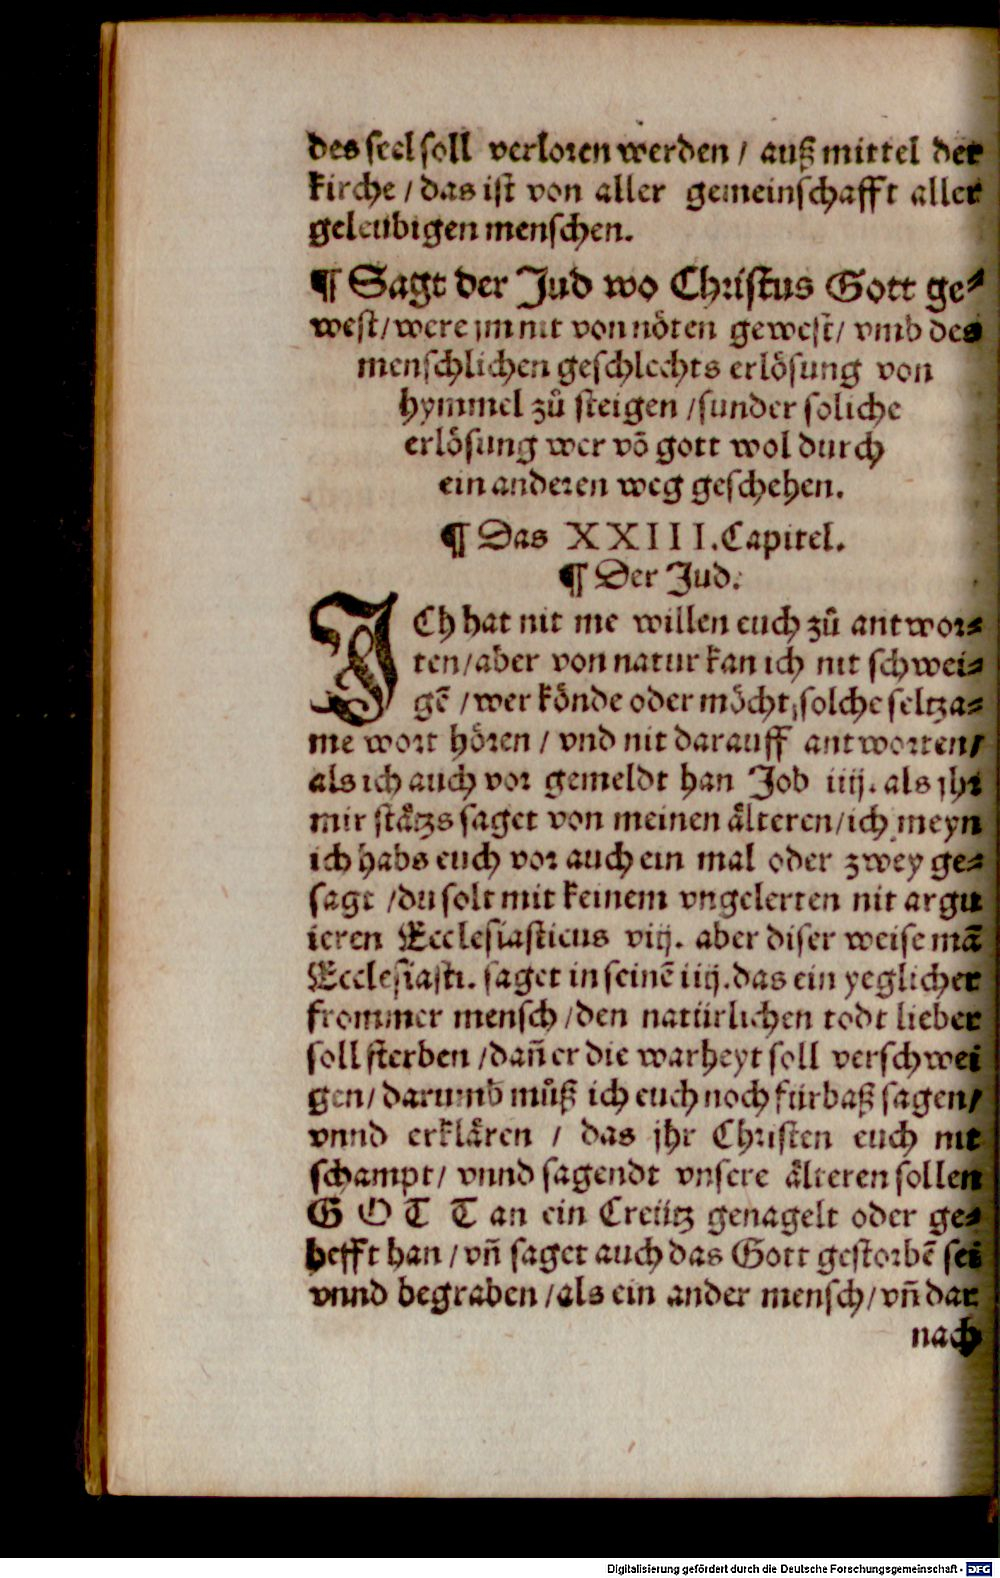 des seel soll verloren werden / auß mittel der
kirche / das ist von aller gemeinschafft aller
geleubigen menschen.
¶ Sagt der Jud wo Christus Gott ge⸗
west / were jm nit von nöten gewest / vmb des
menschlichen geschlechts erlösung von
hymmel zů steigen / sunder soliche
erlösung wer võ gott wol durch
ein anderen weg geschehen.
¶ Das XXIII. Capitel.
¶ Der Jud.
ICh hat nit me willen euch zů antwor⸗
ten / aber von natur kan ich nit schwei⸗
gẽ / wer könde oder möcht solche seltza⸗
me wort hören / vnd nit darauff antworten /
als ich auch vor gemeldt han Job iiij. als jhr
mir stätzs saget von meinen älteren / ich meyn
ich habs euch vor auch ein mal oder zwey ge⸗
sagt / du solt mit keinem vngelerten nit argu
ieren Ecclesiasticus viij. aber diser weise mã
Ecclesiasti. saget in seinẽ iiij. das ein yeglicher
frommer mensch / den natürlichen todt lieber
soll sterben / dañ er die warheyt soll verschwei
gen / darumb můß ich euch noch fürbaß sagen /
vnnd erklären / das jhr Christen euch nit
schampt / vnnd sagendt vnsere älteren sollen
G O T T an ein Creütz genagelt oder ge⸗
hefft han / vñ saget auch das Gott gestorbẽ sei
vnnd begraben / als ein ander mensch / vñ dar
nach
Digitalisierung gefördert durch die Deutsche Forschungsgemeinschaft - DFG